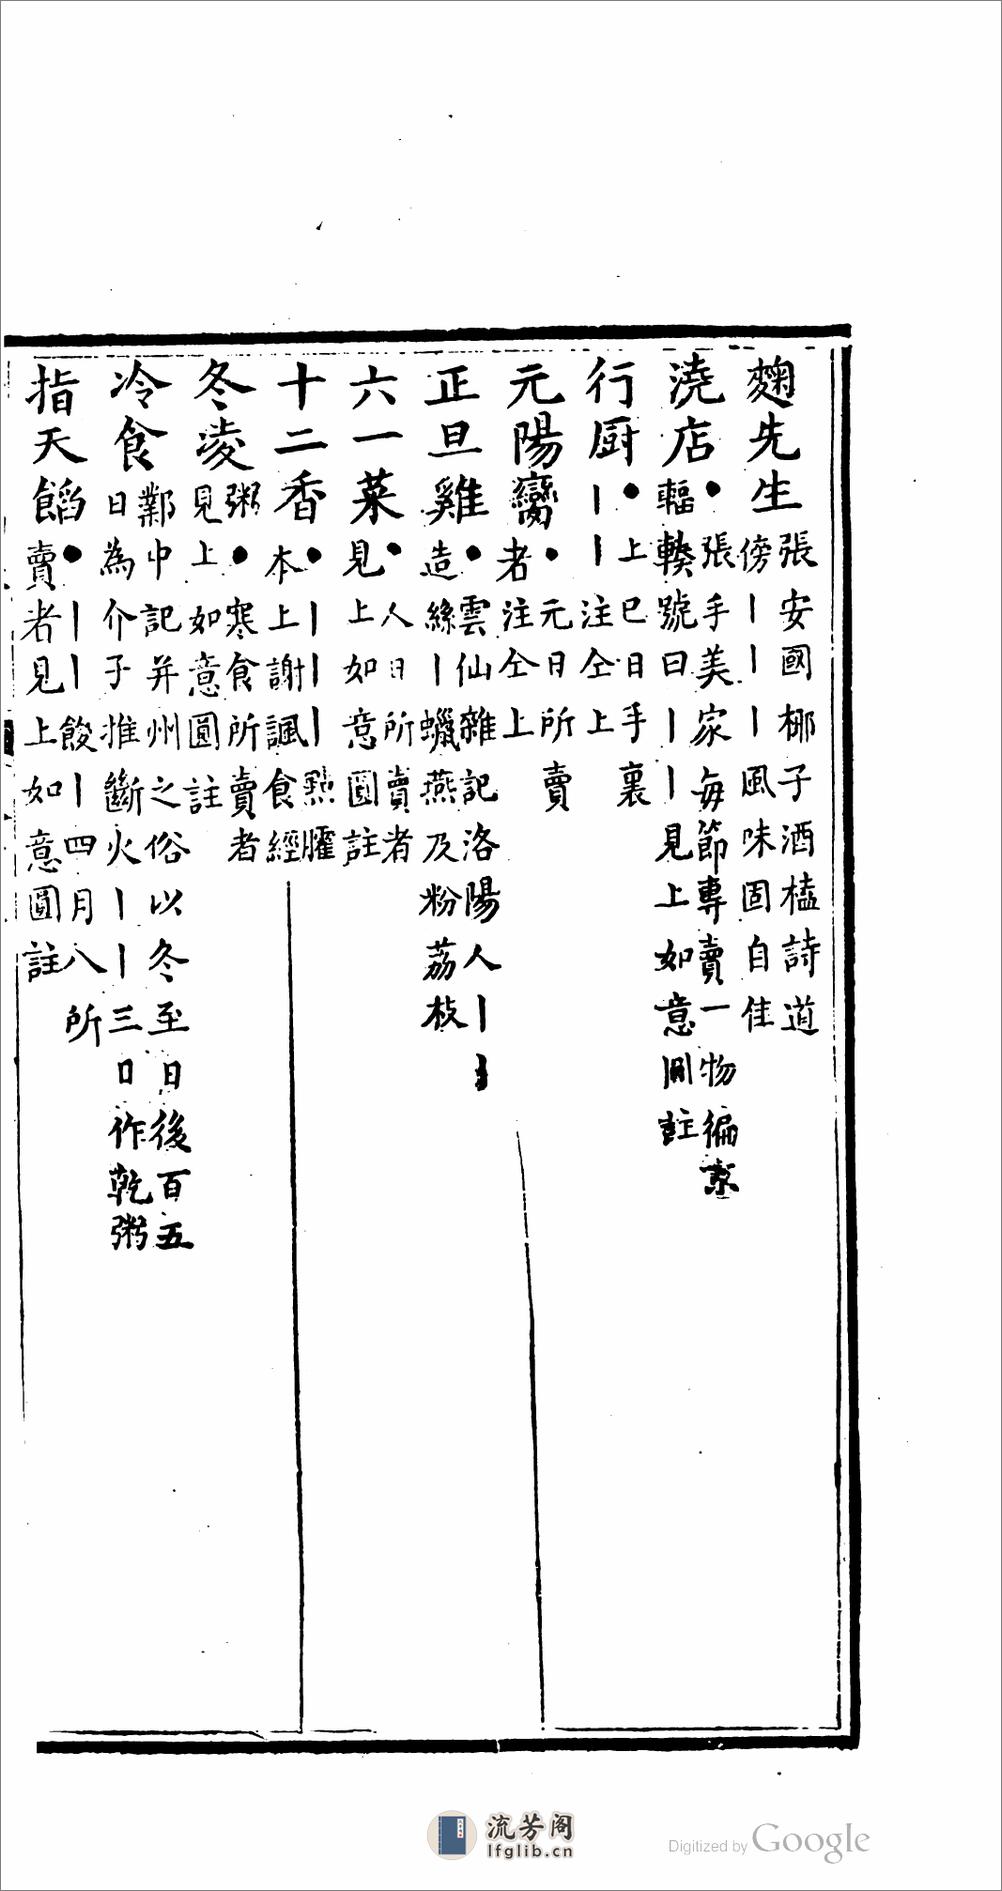 麴先生張安國椰子酒榼詩道
傍丨丨丨風味固自佳
澆店●張手美家每節專賣一物徧京
輻輳號曰丨丨見上如意圓註
行厨●上巳日手裏
丨丨注仝上
元陽臠●元日所賣
者注仝上
正旦雞●雲仙雜記洛陽人丨
造絲丨蠟燕及粉荔枝
六一菜●人日所賣者
見上如意圓註
十二香●丨丨丨㸃臛
本上謝諷食經
冬凌粥●寒食所賣者
見上如意圓註
冷食鄴中記并州之俗以冬至日後百五
日為介子推斷火丨丨三日作乾粥
指天餡●丨丨餕丨四月八所
賣者見上如意圓註
流芳阁
lfglib.cn
Digitized by Google